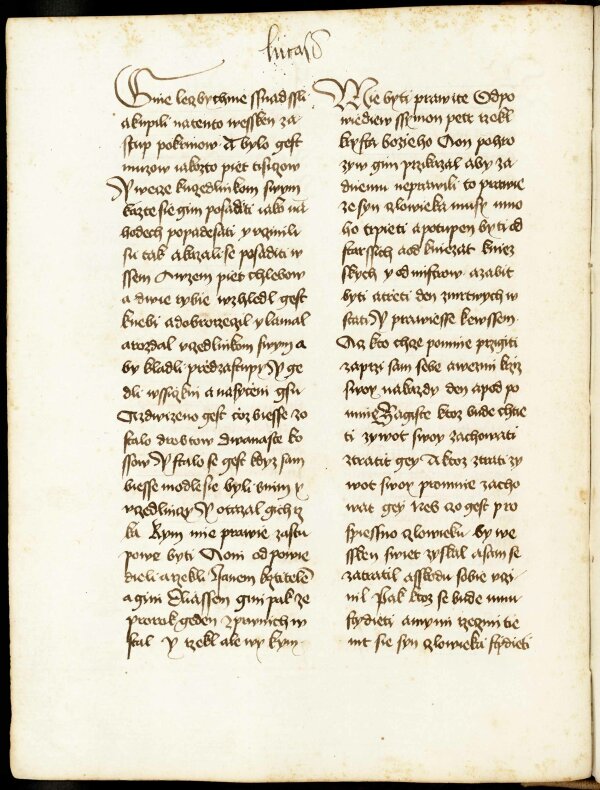 lucass
Gine lez bychme ssnad ssli
a kupili na tento wessken za
stup pokrmow A bylo gest
muzow iakozto piet tisiczow
Y wece k uczedlnikom swym
kazte sie gim posaditi iako na
hodech po padesati y vczinili
su tak a kazali se posaditi w
ssem A wzem piet chlebow
a dwie rybie wzhledl gest
k nebi a dobrorzeczil y lamal
a rozdal vczedlnikom swym a
by kladli przed zastupy Y ge
dli wssiczkni a nasyceni gsu
A zdwizeno gest coz biesse zo
stalo drobtow dwanaste ko
ssow Y stalo se gest kdyz sam
biesse modle sie byli s nim y
vczedlniczy Y otazal gich rz
ka kym mie prawie zastu
powe byti A oni od powie
dieli a rzekli Janem krztitele
a gini Eliassem gini pak ze
prorok geden z prwnich w
stal y rzekl ale wy kym
Mie byti prawite Odpo
wiediew ssymon petr rzekl
krysta bozieho A on pohro
zyw gim przikazal aby za
dnemu neprawili to prawie
ze syn czlowieka musy mno
ho trpieti a potupen byti od
starssich a od kniezat kniez
skych y od mistrow a zabit
byti a treti den z mrtwych w
stati Y prawiesse ke wssem
A cz kto chcze po mnie przigiti
zaprzi sam sebe a wezmi krziz
swoy na kazdy den a pod po
mnie Zagiste ktoz bude chtie
ti zywot swoy zachowati
ztratit gey A ktoz ztrati zy
wot swoy pro mnie zacho
wat gey Neb czo gest pro
spiessno czlowieku by we
ssken swiet zyskal a sam se
zatratil a sskodu sobie vczi
nil Pak ktoz se bude mnu
stydieti a mymi rzeczmi tie
mt sie syn czlowieka stydieti